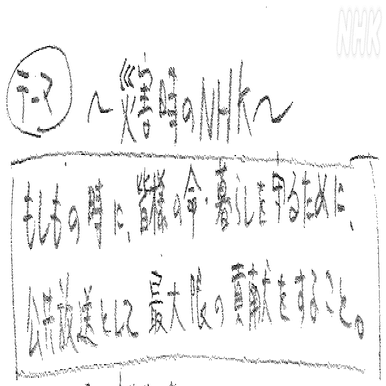 NHK
テーマ 〜災害時のNHK〜
もしもの時に、皆様の命・暮らしを守るために、
公共放送として最大限の貢献をすること。